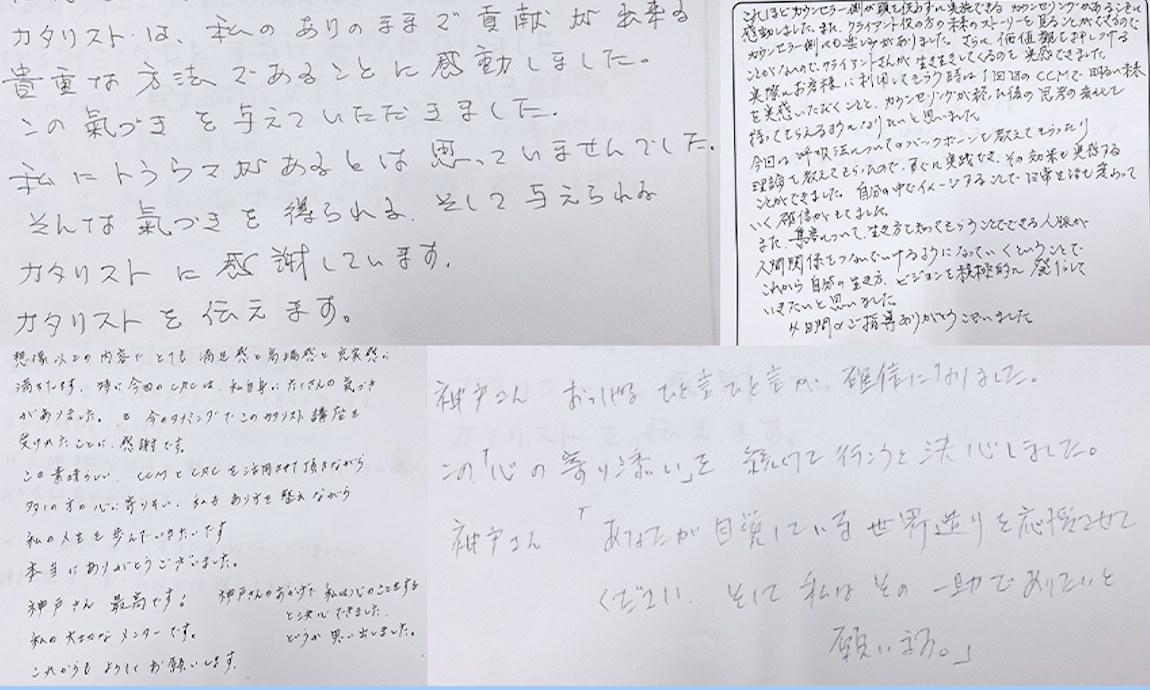 カタリストは、私のありのままで貢献が出来る
貴重な方法であることに感動しました。
この氣づきを与えていただきました。
私にトラウマがあるとは思っていませんでした。
そんな氣づきを得られる、そして与えられる
カタリストに感謝しています。
カタリストを伝えます。
これほどカウンセラー側が頭を使わずに実施できるカウンセリングがあることに
感動しました。また、クライアント役の方の未来のストーリーを見ることができるので
カウンセラー側も楽しみがありました。さらに、価値観を押しつける
ことがないので、クライアントさんが生き生きしてくるのを実感できました。
実際にお客様に利用してもらう時は1回目のCCMで明るい未来
を実感いただくことと、カウンセリングが終った後の思考の変化して
持ってもらえるようになりたいと思いました。
今回は呼吸法についてのバックボーンを教えてもらったり
理論も教えてもらったので、すぐに実践でき、その効果も実感する
ことができました。自分の中でイメージすることで日常生活も変わって
いく確信がもてました。
また、集客について、生き方を知ってもらうことでできる人脈が
人間関係をつないでいけるようになっていくということで
これから自分の生き方、ビジョンを積極的に発信して
いきたいと思いました。
4日間のご指導ありがとうございました
想像以上の内容で とても 満足感と高揚感と充実感に
満ちています。特に今回のCRCは、私自身にたくさんの気づき
がありました。今のタイミングでこのカタリスト講座を
受けれたことに、感謝です。
この素晴らしい、CCMとCRCを活用させて頂きながら
多くの方の心に寄りそい、私もあり方を整えながら
私の人生を歩んでいきたいです
本当にありがとうございました。
神戸さん 最高です!
私の大切なメンターです。
これからもよろしくお願いします。
神戸さんのおかげで 私は心のことをする
と決心できました。
どうか 思い出しました。
神戸さん おっしゃる ひと言ひと言が、確信になりました。
この「心の寄り添い」を 続けて行こうと決心しました。
神戸さん、「あなたが目覚している世界造りを応援させて
ください。そして私はその一助でありたいと
願います。」